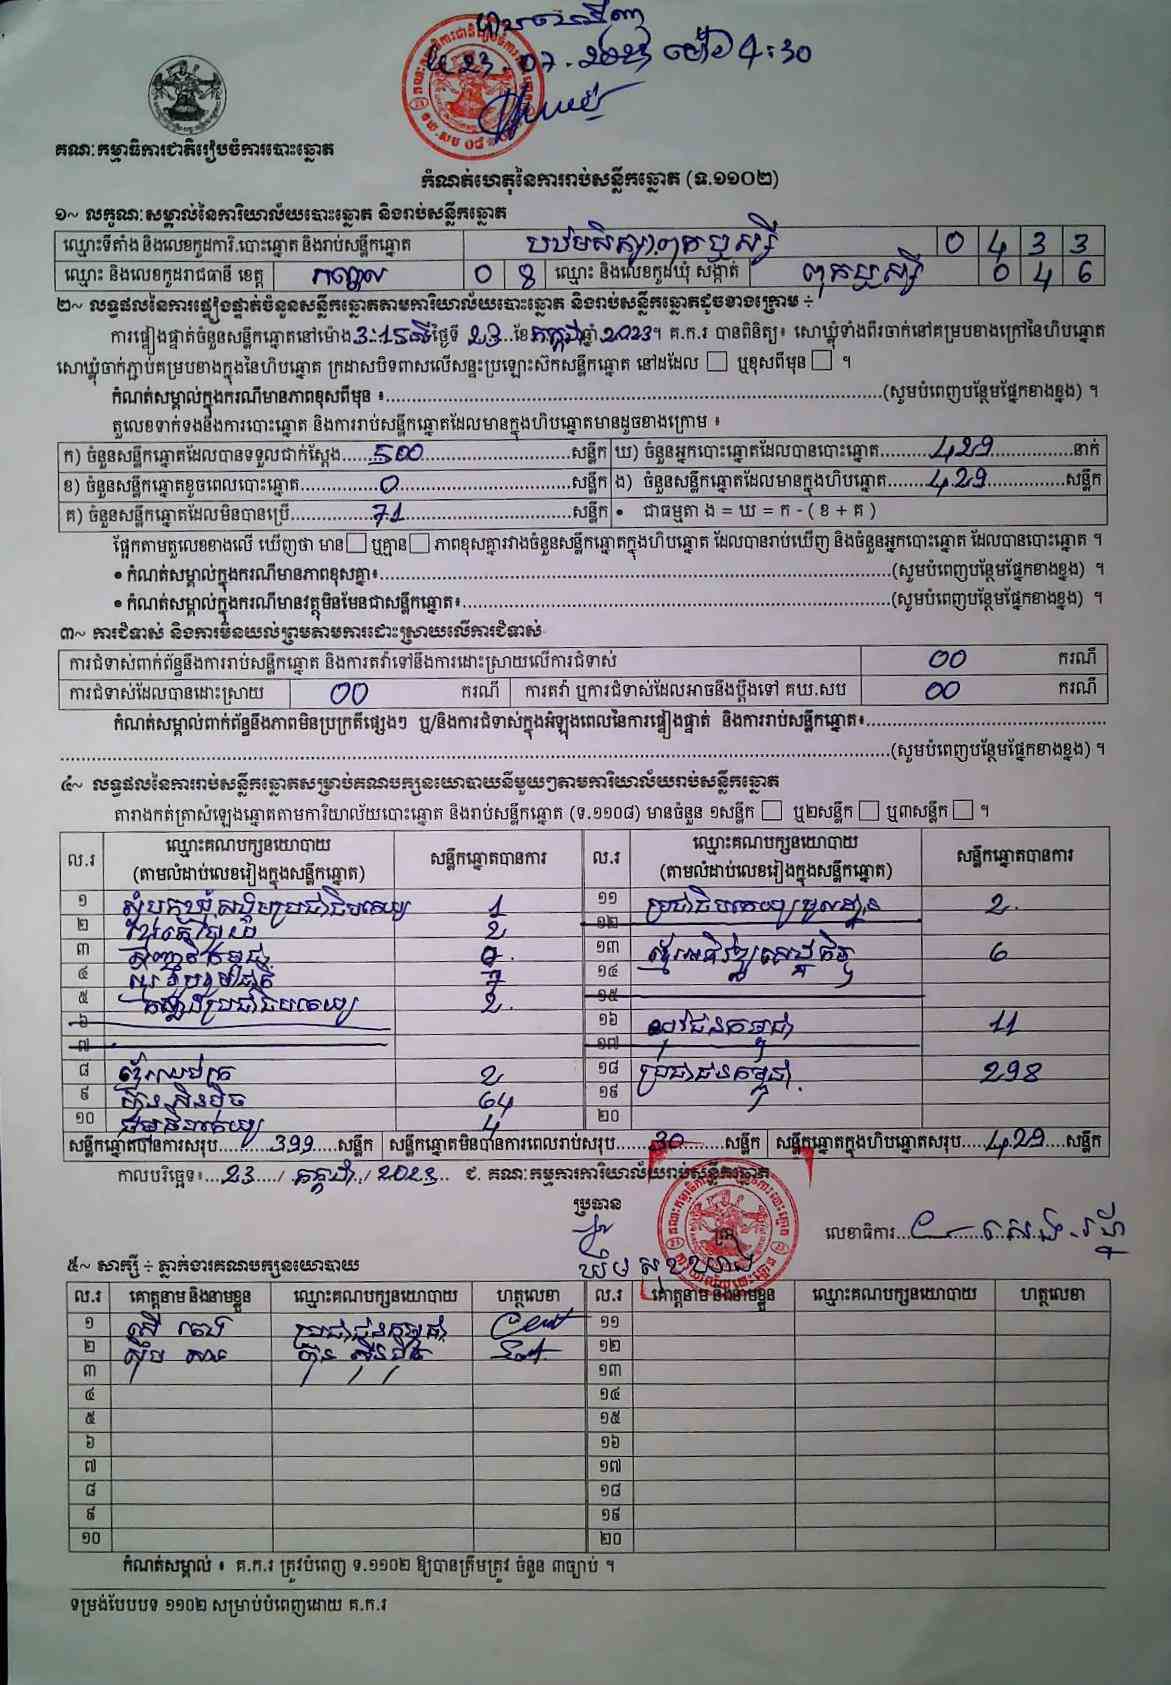 23.07.2023 ម៉ោង 4:30
គណៈកម្មាធិការជាតិរៀបចំការបោះឆ្នោត
កំណត់ហេតុនៃការរាប់សន្លឹកឆ្នោត (ទ.១១០២)
១~ លក្ខណៈសម្គាល់នៃការិយាល័យបោះឆ្នោត និងរាប់សន្លឹកឆ្នោត
ឈ្មោះទីតាំង និងលេខកូដការិ.បោះឆ្នោត និងរាប់សន្លឹកឆ្នោត 0 4 3 3
ឈ្មោះ និងលេខកូដរាជធានី ខេត្ត កណ្តាល 0 8 ឈ្មោះ និងលេខកូដឃុំ សង្កាត់ 0 4 6
២~ លទ្ធផលនៃការផ្ទៀងផ្ទាត់ចំនួនសន្លឹកឆ្នោតតាមការិយាល័យបោះឆ្នោត និងរាប់សន្លឹកឆ្នោតដូចខាងក្រោម ÷
ការផ្ទៀងផ្ទាត់ចំនួនសន្លឹកឆ្នោតនៅម៉ោង 3:15 ថ្ងៃទី 23 ខែ កក្កដា ឆ្នាំ 2023។ គ.ក.រ បានពិនិត្យ៖ សោឃ្លុំទាំងពីរចាក់នៅគម្របខាងក្រៅនៃហិបឆ្នោត
សោឃ្លុំចាក់ភ្ជាប់គម្របខាងក្នុងនៃហិបឆ្នោត ក្រដាសបិទពាសលើសន្ទះប្រឡោះស៊កសន្លឹកឆ្នោត នៅដដែល ☐ ឬខុសពីមុន ☐ ។
កំណត់សម្គាល់ក្នុងករណីមានភាពខុសពីមុន ៖ (សូមបំពេញបន្ថែមផ្នែកខាងខ្នង) ។
តួលេខទាក់ទងនឹងការបោះឆ្នោត និងការរាប់សន្លឹកឆ្នោតដែលមានក្នុងហិបឆ្នោតមានដូចខាងក្រោម ៖
ក) ចំនួនសន្លឹកឆ្នោតដែលបានទទួលជាក់ស្តែង 500 សន្លឹក ឃ) ចំនួនអ្នកបោះឆ្នោតដែលបានបោះឆ្នោត 429 នាក់
ខ) ចំនួនសន្លឹកឆ្នោតខូចពេលបោះឆ្នោត 0 សន្លឹក ង) ចំនួនសន្លឹកឆ្នោតដែលមានក្នុងហិបឆ្នោត 429 សន្លឹក
គ) ចំនួនសន្លឹកឆ្នោតដែលមិនបានប្រើ 71 សន្លឹក • ជាធម្មតា ង = ឃ = ក - ( ខ + គ )
ផ្អែកតាមតួលេខខាងលើ ឃើញថា មាន ☐ ឬគ្មាន ☐ ភាពខុសគ្នារវាងចំនួនសន្លឹកឆ្នោតក្នុងហិបឆ្នោត ដែលបានរាប់ឃើញ និងចំនួនអ្នកបោះឆ្នោត ដែលបានបោះឆ្នោត ។
• កំណត់សម្គាល់ក្នុងករណីមានភាពខុសគ្នា៖ (សូមបំពេញបន្ថែមផ្នែកខាងខ្នង) ។
• កំណត់សម្គាល់ក្នុងករណីមានវត្ថុមិនមែនជាសន្លឹកឆ្នោត៖ (សូមបំពេញបន្ថែមផ្នែកខាងខ្នង) ។
៣~ ការជំទាស់ និងការមិនយល់ព្រមតាមការដោះស្រាយលើការជំទាស់
ការជំទាស់ពាក់ព័ន្ធនឹងការរាប់សន្លឹកឆ្នោត និងការតវ៉ាទៅនឹងការដោះស្រាយលើការជំទាស់ 00 ករណី
ការជំទាស់ដែលបានដោះស្រាយ 00 ករណី ការតវ៉ា ឬការជំទាស់ដែលអាចនឹងប្តឹងទៅ គឃ.សប 00 ករណី
កំណត់សម្គាល់ពាក់ព័ន្ធនឹងភាពមិនប្រក្រតីផ្សេងៗ ឬ/និងការជំទាស់ក្នុងអំឡុងពេលនៃការផ្ទៀងផ្ទាត់ និងការរាប់សន្លឹកឆ្នោត៖
(សូមបំពេញបន្ថែមផ្នែកខាងខ្នង) ។
៤~ លទ្ធផលនៃការរាប់សន្លឹកឆ្នោតសម្រាប់គណបក្សនយោបាយនីមួយៗតាមការិយាល័យរាប់សន្លឹកឆ្នោត
តារាងកត់ត្រាសំឡេងឆ្នោតតាមការិយាល័យបោះឆ្នោត និងរាប់សន្លឹកឆ្នោត (ទ.១១០៨) មានចំនួន ១សន្លឹក ☐ ឬ២សន្លឹក ☐ ឬ៣សន្លឹក ☐ ។
ល.រ ឈ្មោះគណបក្សនយោបាយ សន្លឹកឆ្នោតបានការ ល.រ ឈ្មោះគណបក្សនយោបាយ សន្លឹកឆ្នោតបានការ
(តាមលំដាប់លេខរៀងក្នុងសន្លឹកឆ្នោត) (តាមលំដាប់លេខរៀងក្នុងសន្លឹកឆ្នោត)
១ សំបុកឃ្មុំសង្គមប្រជាធិបតេយ្យ 1 ១១ ប្រជាធិបតេយ្យមូលដ្ឋាន 2
២ 2 ១២
៣ ១៣ 6
៤ ១៤
៥ 2 ១៥
៦ ១៦ យុវជនកម្ពុជា 11
៧ ១៧
៨ ខ្មែរ 2 ១៨ ប្រជាជនកម្ពុជា 298
៩ ហ៊្វុនស៊ិនប៉ិច 64 ១៩
១០ 4 ២០
សន្លឹកឆ្នោតបានការសរុប 399 សន្លឹក សន្លឹកឆ្នោតមិនបានការពេលរាប់សរុប 30 សន្លឹក សន្លឹកឆ្នោតក្នុងហិបឆ្នោតសរុប 429 សន្លឹក
កាលបរិច្ឆេទ៖ 23 / កក្កដា / 2023 ជ. គណៈកម្មការការិយាល័យរាប់សន្លឹកឆ្នោត
ប្រធាន
លេខាធិការ
៥~ សាក្សី ÷ ភ្នាក់ងារគណបក្សនយោបាយ
ល.រ គោត្តនាម និងនាមខ្លួន ឈ្មោះគណបក្សនយោបាយ ហត្ថលេខា ល.រ គោត្តនាម និងនាមខ្លួន ឈ្មោះគណបក្សនយោបាយ ហត្ថលេខា
១ ប្រជាជនកម្ពុជា ១១
២ ហ៊្វុនស៊ិនប៉ិច ១២
៣ ១៣
៤ ១៤
៥ ១៥
៦ ១៦
៧ ១៧
៨ ១៨
៩ ១៩
១០ ២០
កំណត់សម្គាល់ ៖ គ.ក.រ ត្រូវបំពេញ ទ.១១០២ ឱ្យបានត្រឹមត្រូវ ចំនួន ៣ច្បាប់ ។
ទម្រង់បែបបទ ១១០២ សម្រាប់បំពេញដោយ គ.ក.រ